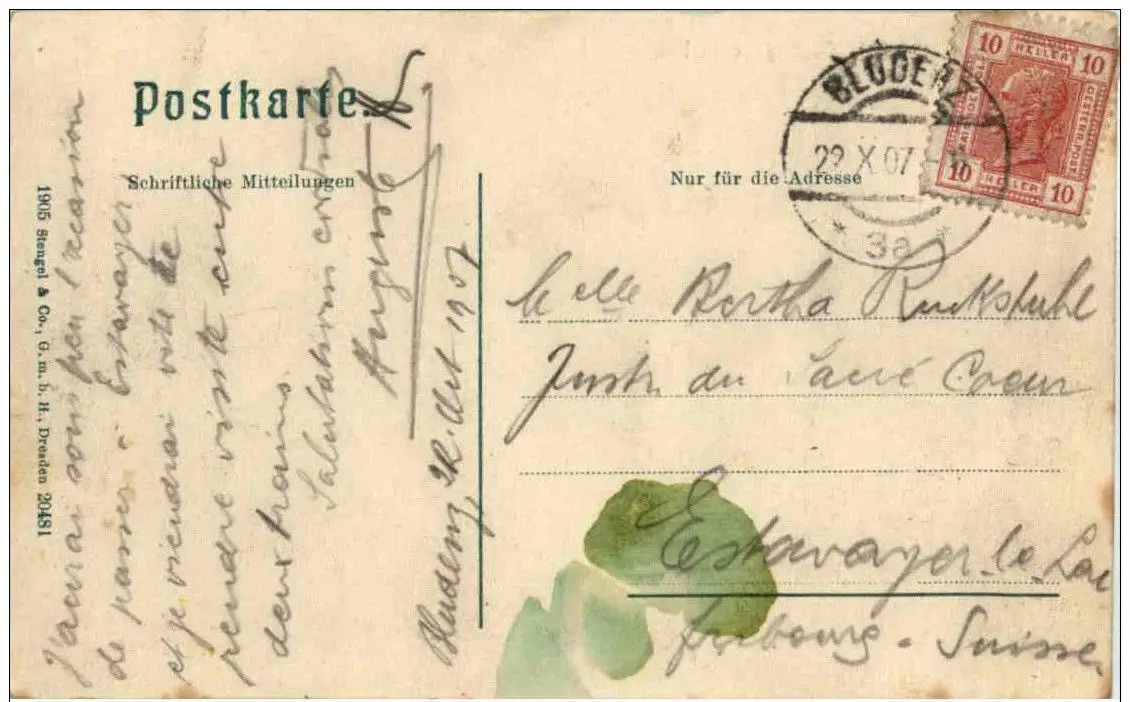 Postkarte.
Schriftliche Mitteilungen
Nur für die Adresse
BLUDENZ
22 X 07
* 3a *
10 HELLER 10
10 HELLER 10
OESTERR. POST
Melle Bertha Ruckstuhl
Instr. du Sacré Coeur
Estavayer-le-Lac
fribourg - Suisse.
Bludenz, 22. Oct 1907
J'aurai sous peu l'occasion
de passer à Estavayer
et je viendrai vite te
rendre visite entre
deux trains.
Salutations cordiales
Auguste
1905 Stengel & Co., G. m. b. H., Dresden 20481